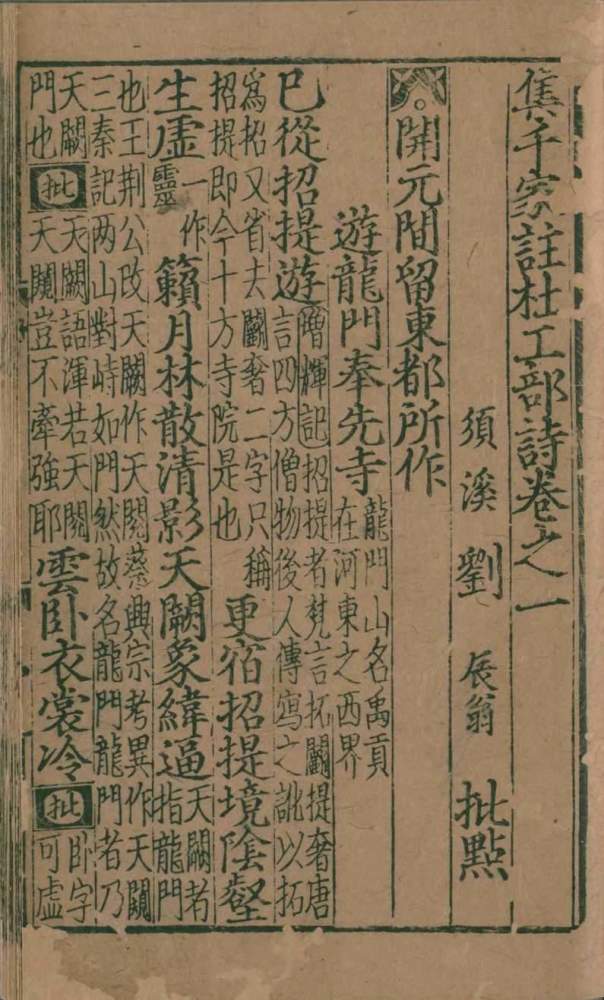 集千家註杜工部詩卷之一
須溪劉辰翁批點
開元間留東都所作
遊龍門奉先寺龍門山名禹貢在河東之西界
已從招提遊增輝記招提者梵言拓鬬提奢唐言四方僧物後人傳寫之訛以拓
爲招又省去鬬奢二字只稱招提即今十方寺院是也更宿招提境陰壑
生虛一作靈籟月林散清影天闕象緯逼天闕者指龍門
也王荆公改天闕作天閱蔡興宗考異作天闚三秦記两山對峙如門然故名龍門龍門者乃
天闕門也批天闕語渾若天閱天闚豈不牽強耶雲卧衣裳冷批卧字可虛